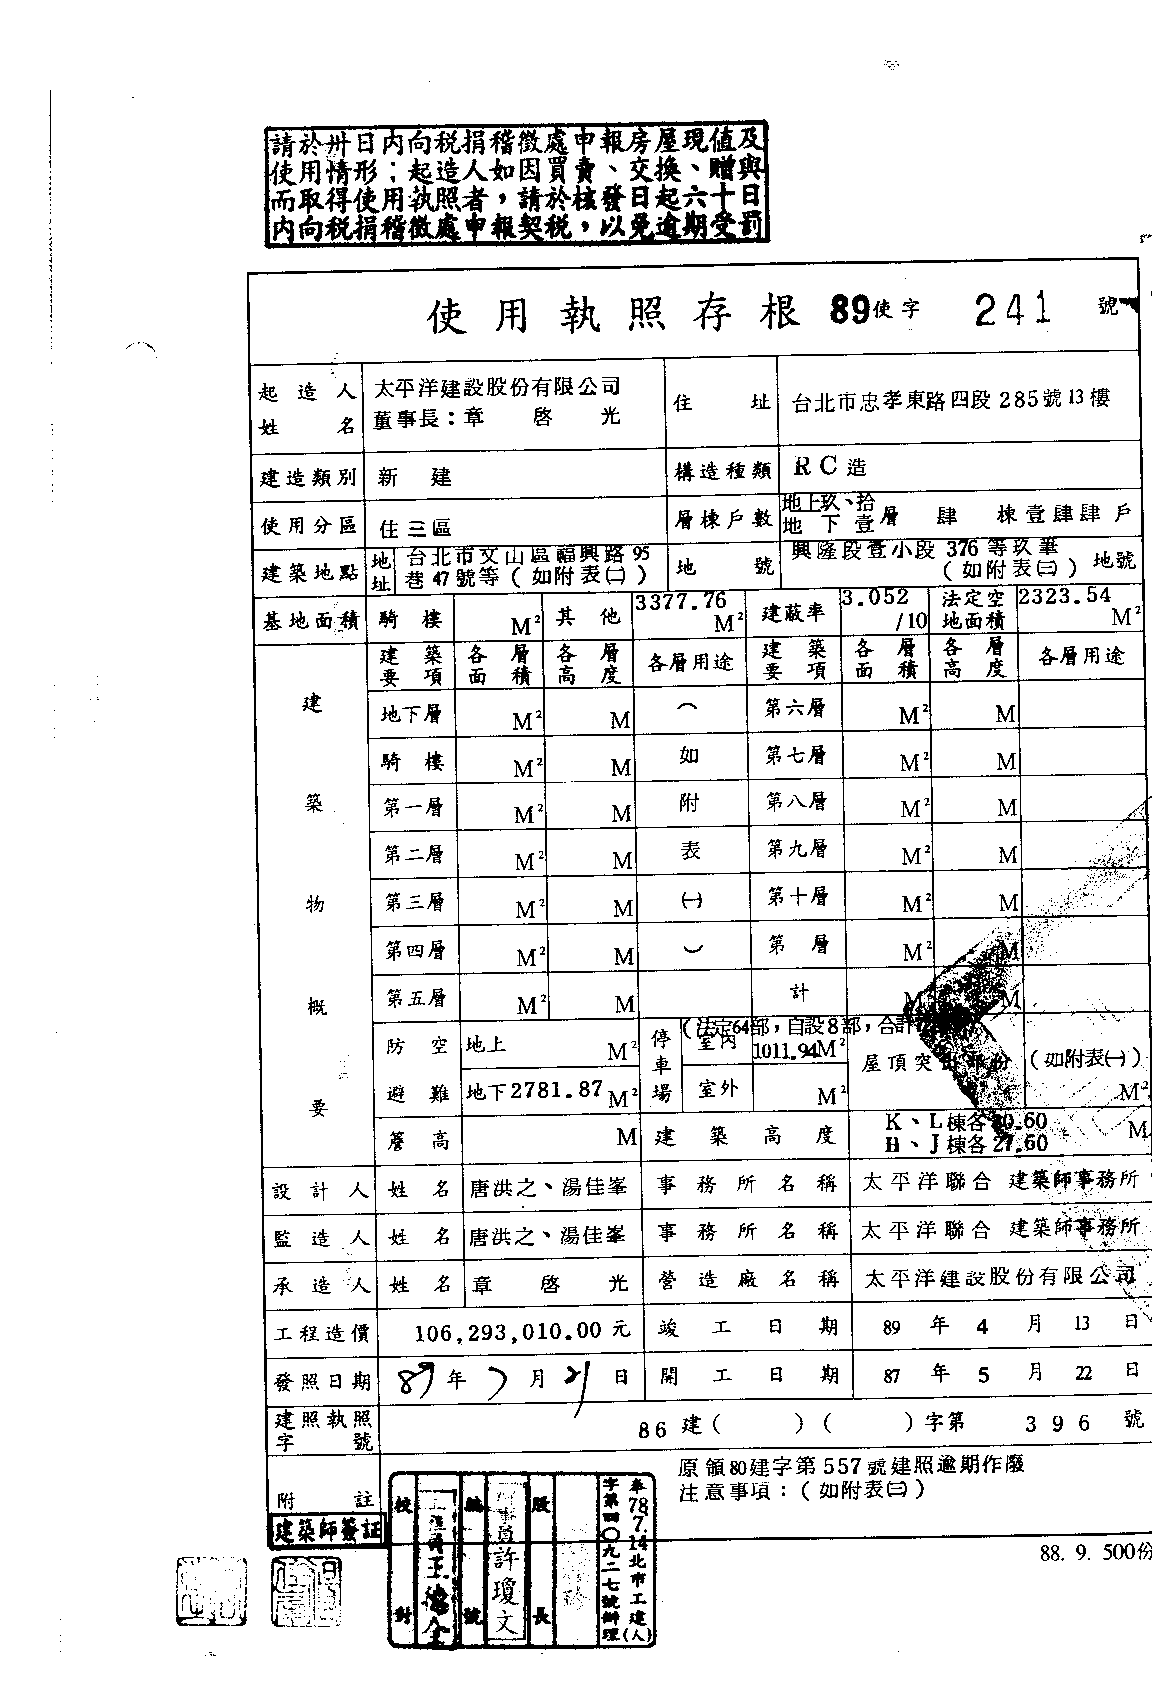 請於卅日內向稅捐稽徵處申報房屋現值及
使用情形；起造人如因買賣、交換、贈與
而取得使用執照者，請於核發日起六十日
內向稅捐稽徵處申報契稅，以免逾期受罰
使用執照存根 89使字 241 號
起造人姓名 太平洋建設股份有限公司 董事長：章啓光 住址 台北市忠孝東路四段285號13樓
建造類別 新建 構造種類 RC造
使用分區 住三區 層棟戶數 地上玖、拾 地下壹 層 肆 棟壹肆肆戶
建築地點 地址 台北市文山區福興路95巷47號等（如附表㈡） 地號 興隆段壹小段376等玖筆（如附表㈢）地號
基地面積 騎樓 M² 其他 3377.76 M² 建蔽率 3.052/10 法定空地面積 2323.54 M²
建築物概要
建築要項 各層面積 各層高度 各層用途 建築要項 各層面積 各層高度 各層用途
地下層 M² M （ 第六層 M² M
騎樓 M² M 如 第七層 M² M
第一層 M² M 附 第八層 M² M
第二層 M² M 表 第九層 M² M
第三層 M² M ㈠ 第十層 M² M
第四層 M² M ） 第 層 M² M
第五層 M² M 計 M² M
（法定64部，自設8部，合計
防空避難 地上 M² 停車場 室內 1011.94M² 屋頂突出部份 （如附表㈠）
地下2781.87 M² 室外 M² M²
簷高 M 建築高度 K、L棟各30.60 M
H、J棟各27.60
設計人 姓名 唐洪之、湯佳峯 事務所名稱 太平洋聯合 建築師事務所
監造人 姓名 唐洪之、湯佳峯 事務所名稱 太平洋聯合 建築師事務所
承造人 姓名 章啓光 營造廠名稱 太平洋建設股份有限公司
工程造價 106,293,010.00元 竣工日期 89年4月13日
發照日期 89年7月21日 開工日期 87年5月22日
建照執照字號 86建（ ）（ ）字第 396 號
附註 原領80建字第557號建照逾期作廢
注意事項：（如附表㈢）
建築師簽証
校對
總號
許瓊文
股長
奉78.7.14北市工建(人)
字第四〇九二七號辦理
88. 9. 500份